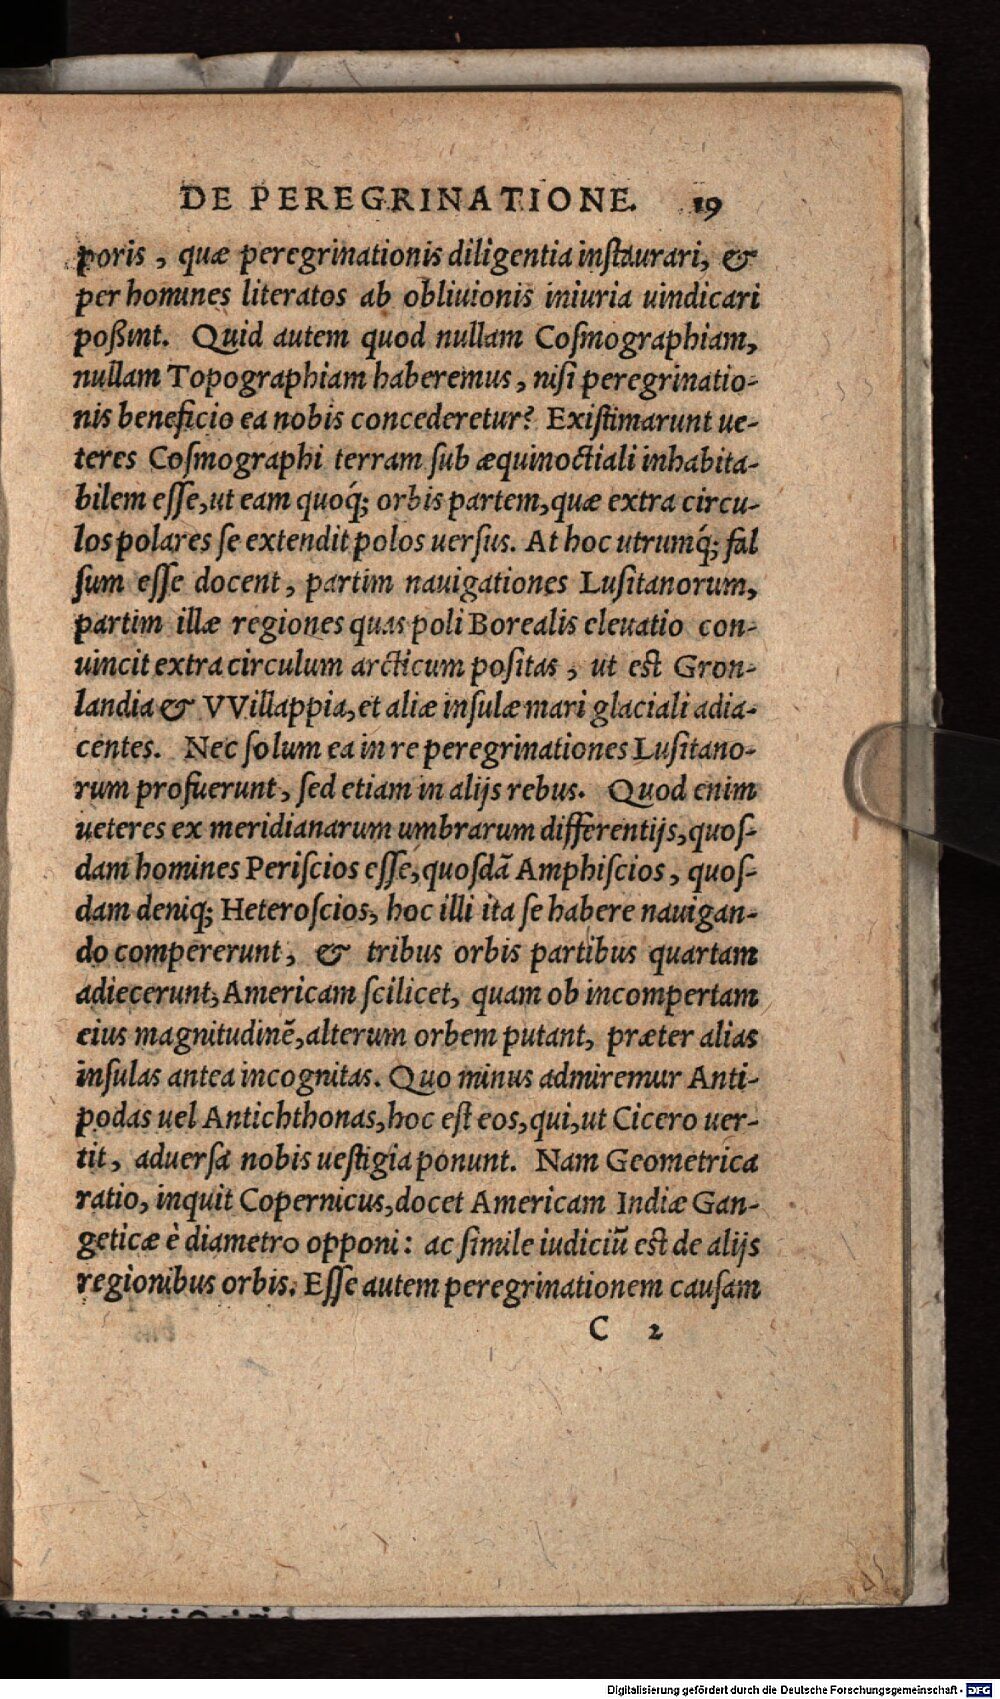 DE PEREGRINATIONE. 19
poris, quæ peregrinationis diligentia inſtaurari, &
per homines literatos ab obliuionis iniuria uindicari
poßint. Quid autem quod nullam Coſmographiam,
nullam Topographiam haberemus, niſi peregrinatio-
nis beneficio ea nobis concederetur? Exiſtimarunt ue-
teres Coſmographi terram ſub æquinoctiali inhabita-
bilem eſſe, ut eam quoq́; orbis partem, quæ extra circu-
los polares ſe extendit polos uerſus. At hoc utrumq́; fal
ſum eſſe docent, partim nauigationes Luſitanorum,
partim illæ regiones quas poli Borealis eleuatio con-
uincit extra circulum arcticum poſitas, ut eſt Gron-
landia & VVillappia, et aliæ inſulæ mari glaciali adia-
centes. Nec ſolum ea in re peregrinationes Luſitano-
rum profuerunt, ſed etiam in alijs rebus. Quod enim
ueteres ex meridianarum umbrarum differentijs, quoſ-
dam homines Periſcios eſſe, quoſdã Amphiſcios, quoſ-
dam deniq; Heteroſcios, hoc illi ita ſe habere nauigan-
do compererunt, & tribus orbis partibus quartam
adiecerunt, Americam ſcilicet, quam ob incompertam
eius magnitudinẽ, alterum orbem putant, præter alias
inſulas antea incognitas. Quo minus admiremur Anti-
podas uel Antichthonas, hoc eſt eos, qui, ut Cicero uer-
tit, aduerſa nobis ueſtigia ponunt. Nam Geometrica
ratio, inquit Copernicus, docet Americam Indiæ Gan-
geticæ è diametro opponi: ac ſimile iudiciũ eſt de alijs
regionibus orbis. Eſſe autem peregrinationem cauſam
C 2
Digitalisierung gefördert durch die Deutsche Forschungsgemeinschaft - DFG